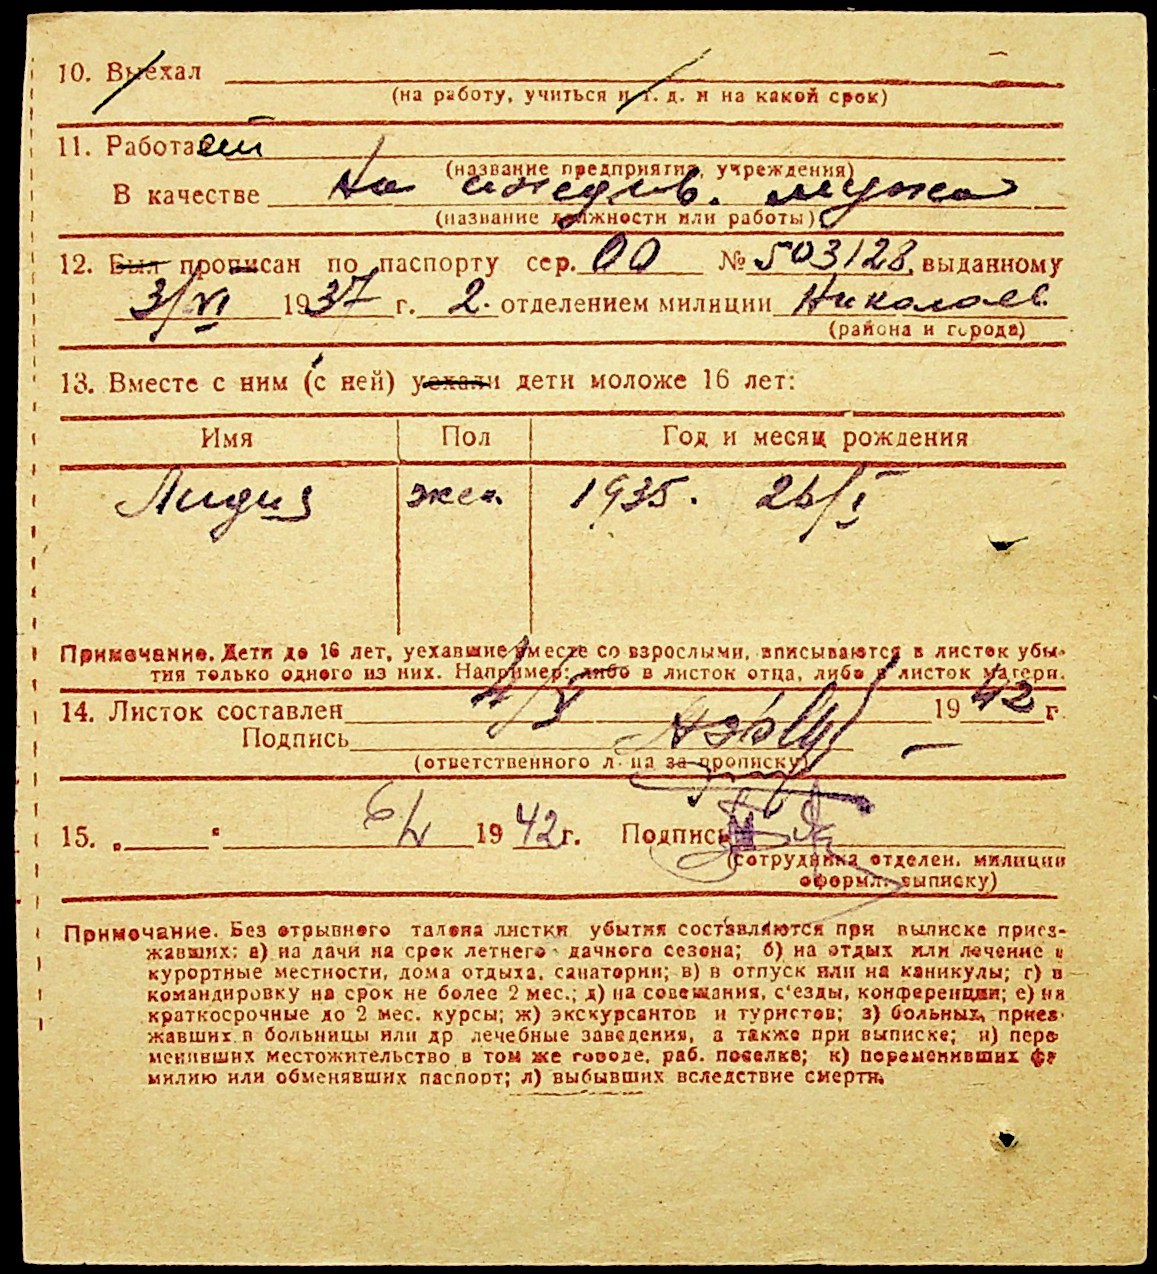 10. Выехал
(на работу, учиться и т. д. и на какой срок)
11. Работает
(название предприятия, учреждения)
В качестве На иждив. мужа
(название должности или работы)
12. Был прописан по паспорту сер. 00 № 503128, выданному
3/VI 1937 г. 2. отделением милиции Николаев.
(района и города)
13. Вместе с ним (с ней) уехали дети моложе 16 лет:
Имя Пол Год и месяц рождения
Лидия жен. 1935. 26/I
Примечание. Дети до 16 лет, уехавшие вместе со взрослыми, вписываются в листок убы-
тия только одного из них. Например: либо в листок отца, либо в листок матери.
14. Листок составлен 4/V 1942 г.
Подпись
(ответственного л-ца за прописку)
15. „ “ 6/V 1942 г. Подпись
(сотрудника отделен. милиции
оформл. выписку)
Примечание. Без отрывного талона листки убытия составляются при выписке приез-
жавших: а) на дачи на срок летнего дачного сезона; б) на отдых или лечение в
курортные местности, дома отдыха, санатории; в) в отпуск или на каникулы; г) в
командировку на срок не более 2 мес.; д) на совещания, с'езды, конференции; е) на
краткосрочные до 2 мес. курсы; ж) экскурсантов и туристов; з) больных, приез-
жавших в больницы или др лечебные заведения, а также при выписке; и) пере-
менивших местожительство в том же городе, раб. поселке; к) переменивших фа-
милию или обменявших паспорт; л) выбывших вследствие смерти.